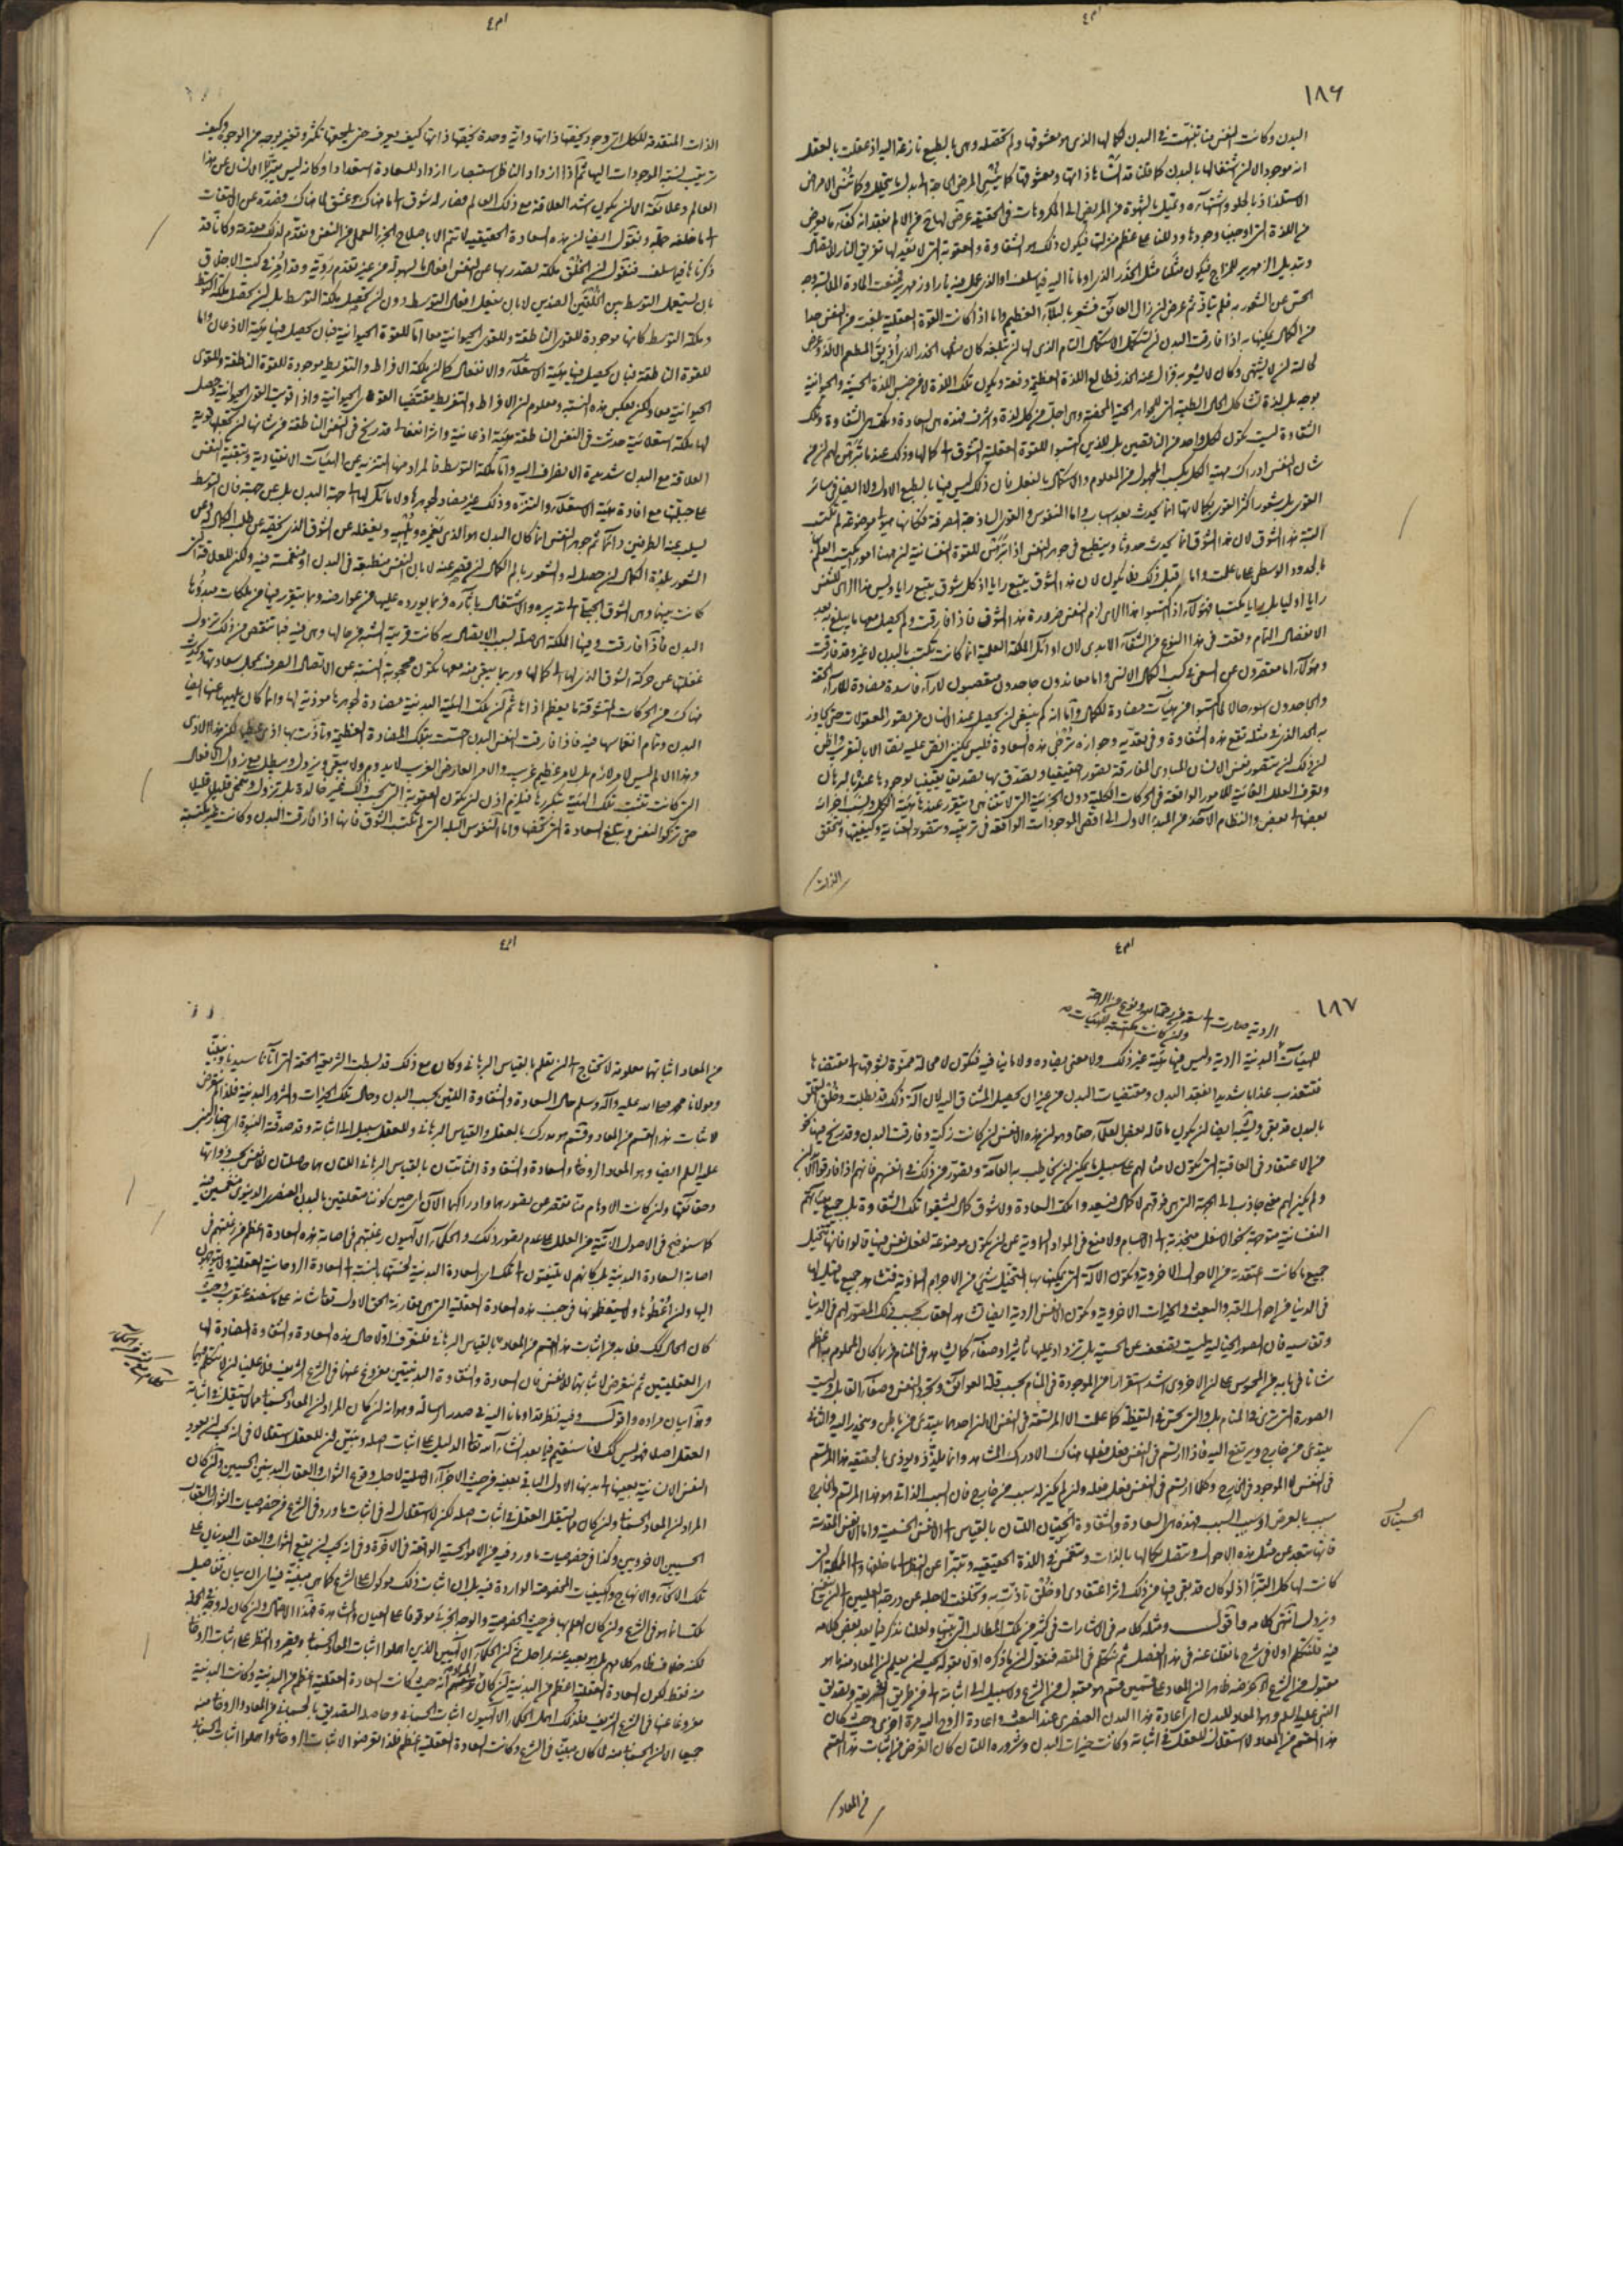 ١٨٦
البدن وكانت النفس منا تنبهت فى البدن لكمالها الذى هو معشوقها ولم تحصله وهى بالطبع نازعة اليه اذ عقلت بالفعل
انه موجود الا ان اشتغالها بالبدن كما قلنا قد انساها ذاتها ومعشوقها كما ينسى المرض الحاجة الى بدل ما يتحلل وكما ينسى المرض
الاستلذاذ بالحلو واشتهاءه وتميل بالشهوة من المريض الى المكروهات فى الحقيقة عرض لها ح من الالم بفقدانه كفاء ما يعرض
من اللذة التى اوجبنا وجودها ودللنا على عظم منزلتها فيكون ذلك هو الشقاوة والعقوبة التى لا يعدلها تفريق النار للاتصال
وتبديل الزمهرير للمزاج فيكون مثلنا مثل الخدر الذى اومأنا اليه فيما سلف او الذى عمل فيه نار او زمهرير فمنعت المادة الملابسة وجه
الحس عن الشعور به فلم يتأذ ثم عرض ان زال العائق فشعر بالبلاء العظيم واما اذا كانت القوة العقلية بلغت من النفس حدا
من الكمال يمكنها به اذا فارقت البدن ان تستكمل الاستكمال التام الذى لها ان تبلغه كان مثلها الخدر الذى اذيق المطعم الالذ وعرض
لحالة الذ لا يشتهى وكان لا يشعر به فزال عنه الخدر فطالع اللذة العظيمة دفعة ويكون تلك اللذة لا من جنس اللذة الحسية والحيوانية
بوجه بل لذة تشاكل الحال الطيبة التى للجواهر الحية المحضة وهى اجل من كل لذة واشرف فهذه هى السعادة وتلك هى الشقاوة وتلك
الشقاوة ليست تكون لكل واحد من الناقصين بل للذين اكتسبوا للقوة العقلية الشوق الى كمالها وذلك عندما تبرهن لهم ان من
شان النفس ادراك مهية الكل بكسب المجهول من المعلوم والاستكمال بالفعل فان ذلك ليس فيها بالطبع الاول ولا ايضا فى سائر
القوى بل شعور اكثر القوى بكمالاتها انما يحدث بعد اسباب واما النفوس والقوى الساذجة الصرفة فكانها هيولى موضوعة لم تكتسب
البتة هذا الشوق لان هذا الشوق انما يحدث حدوثا وينطبع فى جوهر النفس اذا تبرهن للقوة النفسانية ان ههنا امور تكتسب العلم بها
بالحدود الوسطى على ما علمت واما قبل ذلك فلا يكون لان هذا الشوق يتبع رايا اذ كل شوق يتبع رايا وليس هذا الراى للنفس
رايا اوليا بل رايا مكتسبا فهؤلاء اذا اكتسبوا هذا الراى لزم النفس ضرورة هذا الشوق فاذا فارقت ولم يحصل معها ما يبلغ به بعد
الانفصال التام وقعت فى هذا النوع من الشقاء الابدى لان اوائل الملكة العلمية انما كانت تكتسب بالبدن لا غير وقد فارقت
وهؤلاء اما مقصرون عن السعى فى كسب الكمال الانسى واما معاندون جاحدون متعصبون لآراء فاسدة مضادة للآراء الحقة
والجاحدون اسوء حالا لما اكتسبوا من هيآت مضادة للكمال واما انه كم ينبغى ان يحصل عند الانسان من تصور المعقولات حتى يجاوز
به الحد الذى فى مثله تقع هذه الشقاوة وفى تعديه وجوازه ترجى هذه السعادة فليس يمكننى انص عليه نصا الا بالتقريب واظن
ان ذلك ان يتصور نفس الانسان المبادى المفارقة تصورا حقيقيا ويصدق بها تصديقا يقينيا لوجودها عنده بالبرهان
ويعرف العلل الغائية للامور الواقعة فى الحركات الكلية دون الجزئية التى لا تتناهى ويتقرر عنده هيئة الكل ونسب اجزائه
بعضها الى بعض والنظام الآخذ من المبدا الاول الى اقصى الموجودات الواقعة فى ترتيبه ويتصور العناية وكيفيتها ويتحقق
الذات
الذات المتقدمة للكل اى وجود يخصها ذاتها واية وحدة يخصها ذاتها كيف يعرف حتى لا يلحقها تكثر وتغير بوجه من الوجوه وكيف
ترتيب نسبة الموجودات اليها ثم اذا ازداد الناظر استبصارا ازداد للسعادة استعدادا وكانه ليس يتبرأ الانسان عن هذا
العالم وعلائقه الا ان يكون اكد العلاقة مع ذلك العالم فصار له شوق الى ما هناك وعشق لما هناك وصده عن الالتفات
الى ما خلفه جملة ونقول ايضا ان هذه السعادة الحقيقية لا تتم الا باصلاح الجزء العملى من النفس ونقدم لذلك مقدمة وكانا قد
ذكرناها فيما سلف فنقول ان الخلق ملكة يصدر بها عن النفس افعال ما بسهولة من غير تقدم روية وقد امر فى كتب الاخلاق
بان يستعمل التوسط بين الخلقين الضدين لا بان يفعل افعال التوسط دون ان يحصل ملكة التوسط بل ان يحصل ملكة التوسط
وملكة التوسط كانها موجودة للقوى الناطقة وللقوى الحيوانية معا اما للقوة الحيوانية فبان يحصل فيها هيئة الاذعان واما
للقوة الناطقة فبان يحصل فيها هيئة الاستعلاء والانفعال كما ان ملكة الافراط والتفريط موجودة للقوة الناطقة وللقوى
الحيوانية معا ولكن بعكس هذه النسبة ومعلوم ان الافراط والتفريط مقتضيا القوة الحيوانية واذا قويت القوى الحيوانية وحصل
لها ملكة استعلائية حدثت فى النفس الناطقة هيئة اذعانية واثر انفعالى قد رسخ فى النفس الناطقة من شانها ان يجعلها قوية
العلاقة مع البدن شديدة الانصراف اليه واما ملكة التوسط فالمراد منها التنزيه عن الهيآت الانقيادية وتبقية النفس
على جبلتها مع افادة هيئة الاستعلاء والتنزه وذلك غير مضاد لجوهرها ولا مائل لها الى جهة البدن بل عن جهته فان التوسط
يسلب عنه الطرفين دائما ثم جوهر النفس انما كان البدن هو الذى يغمره ويلهيه ويغفله عن الشوق الذى يخصه عن طلب الكمال الذى
الشعور بلذة الكمال ان حصل له والشعور بالم الكمال ان قصر عنه لا بان النفس منطبعة فى البدن او منغمسة فيه ولكن للعلاقة التى
كانت بينهما وهى الشوق الجبلى الى تدبيره والاشتغال بآثاره وبما يورده عليها من عوارضه وبما يتقرر فيها من ملكات مبدؤها
البدن فاذا فارقت وفيها الملكة الحاصلة بسبب الاتصال به كانت قريبة الشبه من حالها وهى فيه فبما تنقص من ذلك تزول
غفلتها عن حركة الشوق الذى لها الى كمالها وبما يبقى منه معها تكون محجوبة عن الاتصال الصرف بمحل سعادتها ويحدث
هناك من الحركات المتشوشة ما يعظم اذاها ثم ان تلك الهيئة البدنية مضادة لجوهرها موذية لها وانما كان يلهيها عنها ايضا
البدن وتمام انغماسها فيه فاذا فارقت النفس البدن احست بتلك المضادة العظيمة وتأذت بها اذى عظيما لكن هذا الاذى
وهذا الالم ليس لامر لازم بل لامر عظيم غريب والامر العارض الغريب لا يدوم ولا يبقى ويزول ويبطل مع زوال الافعال
التى كانت تثبت تلك الهيئة بتكررها فيلزم اذن ان تكون العقوبة التى بحسب ذلك غير خالدة بل تزول وتنمحى قليلا قليلا
حتى تزكو النفس وتبلغ السعادة التى تخصها واما النفوس البله التى لم تكتسب الشوق فانها اذا فارقت البدن وكانت غير مكتسبة
١٨٧
الردية صارت الى سعة من رحمة الله ونوع من الراحة
وان كانت مكتسبة للهيئات
للهيآت البدنية الردية وليس فيها هيئة غير ذلك ولا معنى يضاده ولا ما ينافيه فتكون لا محالة ممنوة بشوقها الى مقتضاها
فتتعذب عذابا شديدا بفقد البدن ومقتضيات البدن من غير ان يحصل المشتاق اليه لان آلة ذلك قد بطلت وخلق التعلق
بالبدن قد بقى ويشبه ايضا ان يكون ما قاله بعض العلماء حقا وهو ان هذه الانفس ان كانت زكية وفارقت البدن وقد رسخ فيها نحو
من الاعتقاد فى العاقبة التى تكون لامثالهم على سبيل ما يمكن ان يخاطب به العامة وتصور من ذلك فى انفسهم فانهم اذا فارقوا الابدان
ولم يكن لهم معنى جاذب الى الجهة التى هى فوقهم لا كمال فيسعدوا تلك السعادة ولا شوق كمال فيشقوا تلك الشقاوة بل جميع هيآتهم
النفسانية متوجهة نحو الاسفل منجذبة الى الاجسام ولا منع فى المواد السماوية عن ان تكون موضوعة لفعل نفس فيها قالوا فانها تتخيل
جميع ما كانت اعتقدته من الاحوال الاخروية وتكون الآلة التى يمكنها بها التخيل شئ من الاجرام السماوية فتشاهد جميع ما قيل لها
فى الدنيا من احوال القبر والبعث والخيرات الاخروية وتكون الانفس الردية ايضا تشاهد العقاب بحسب ذلك المصور لهم فى الدنيا
وتقاسيه فان الصور الخيالية ليست تضعف عن الحسية بل تزداد عليها تاثيرا وصفاء كما يشاهد فى المنام فربما كان المحلوم به اعظم
شانا فى بابه من المحسوس على ان الاخروى اشد استقرارا من الموجود فى المنام بحسب قلة العوائق وتجرد النفس وصفاء القابل وليست
الصورة التى ترى فى المنام بل والتى تحس فى اليقظة كما علمت الا المرتسمة فى النفس الا ان احدهما يبتدئ من باطن وينحدر اليه والثانى
يبتدى من خارج ويرتفع اليه فاذا ارتسم فى النفس فعل فعلها هناك الادراك المشاهد وانما يلذ ويوذى بالحقيقة هذا المرتسم
فى النفس لا الموجود فى الخارج وكلما ارتسم فى النفس فعل فعله وان لم يكن له سبب من خارج فان السبب الذاتى هو هذا المرتسم والخارج
سبب بالعرض او سبب السبب فهذه هى السعادة والشقاوة الخسيستان اللتان بالقياس الى الانفس الخسيسة واما الانفس المقدسة
فانها تبعد عن مثل هذه الاحوال وتتصل بكمالها بالذات وتنغمس فى اللذة الحقيقية وتتبرأ عن النظر الى ما خلفها والى المملكة التى
كانت لها كل التبرأ اذ لو كان قد بقى فيها من ذلك اثر اعتقادى او خلقى تاذت به وتخلفت لاجله عن درجة العليين الى ان ينفسخ
ويزول انتهى كلامه فاقول ومثله كلامه فى الاشارات فى كثير من تلك المطالب التى بيّنها ولعلنا نذكر فيما بعد بعض كلامه
فيه فلنتكلم اولا فى شرح ما نقلنا عنه فى هذا الفصل ثم نتكلم فى المقصد فنقول ان ما ذكره اولا بقوله يجب ان يعلم ان المعاد منه ما هو
مقبول من الشرع الخ غرضه ظاهر ان المعاد على قسمين قسم هو مقبول من الشرع ولا سبيل الى اثباته الا من طريق الشريعة وتصديق
النبى عليه السلم وهو المعاد للبدن اى اعادة هذا البدن العنصرى عند البعث واعادة الروح اليه مرة اخرى وحيث كان
هذا القسم من المعاد لا استقلال للعقل فى اثباته وكانت خيرات البدن وشروره اللتان كان الغرض من اثبات هذا القسم
من المعاد
من المعاد اثباتها معلومة لا تحتاج الى ان تعلم بالقياس البرهانى وكان مع ذلك قد بسطت الشريعة الحقة التى اتانا سيدنا ونبينا
ومولانا محمد صلى الله عليه وآله وسلم حال السعادة والشقاوة اللتين بحسب البدن وحال تلك الخيرات والشرور البدنية فلذا لم نتعرض
لاثبات هذا القسم من المعاد وقسم هو مدرك بالعقل والقياس البرهانى وللعقل سبيل الى اثباته وقد صدقته النبوة اى اخبار النبى
عليه السلم ايضا وهو المعاد الروحانى والسعادة والشقاوة الثابتتان بالقياس البرهانى اللتان هما حاصلتان للانفس بحسب ذواتها
وحقائقها وان كانت الاوهام منا تقصر عن تصورهما وادراكهما الآن اى حين كوننا متعلقين بالبدن العنصرى الدنيوى منغمسين فيه
كما سنوضح فى الاصول الآتية من العلل على عدم تصور ذلك والحكماء الالهيون رغبتهم فى اصابة هذه السعادة اعظم من رغبتهم فى
اصابة السعادة البدنية بل كانهم لا يلتفتون الى تلك اى السعادة البدنية لخستها بالنسبة الى السعادة الروحانية العقلية ولا يتوجهون
اليها وان اعطوها ولا يستعظمونها فى جنب هذه السعادة العقلية التى هى مقارنة الحق الاول تعالى شانه على ما سنصفه عنقريب وحيث
كان الحال كذلك فلا بد من اثبات هذا القسم من المعاد بالقياس البرهانى فلنعرف اولا حال هذه السعادة والشقاوة المضادة لها
اى العقليتين ثم نتعرض لاثباتها للانفس فان السعادة والشقاوة البدنيتين مفروغ عنهما فى الشرع الشريف فلا علينا ان لا نتكلم فيها
وهذا بيان مراده واقول وفيه نظر قد اومأنا اليه فى صدر الرسالة وهو انه ان كان المراد ان المعاد الجسمانى مما لا يستقل فى اثباته
العقل اصلا فهو ليس كذلك لانا سنقيم فيما بعد انشاء الله تعالى الدليل على اثبات اصله ونبين ان للعقل استقلالا فى انه يجب ان يعود
النفس الانسانية بعينها الى بدنها الاول الباقى بعينه من حيث الاجزاء الاصلية لاجل وقوع الثواب والعقاب البدنيين الحسيين وان كان
المراد ان المعاد الجسمانى وان كان مما يستقل العقل فى اثبات اصله لكن لا استقلال له فى اثبات ما ورد فى الشرع من خصوصيات الثواب والعقاب
الحسيين الاخرويين وكذا فى خصوصيات ما ورد فيه من الامور الحسية الواقعة فى الآخرة وفى انه يجب ان يقع الثواب والعقاب البدنيان على
تلك الانحاء والانهاج والكيفيات المخصوصة الواردة فيه بل ان اثبات ذلك موكول على الشرع كما هى مبنية فيه اى ان بيان تفاصيل
تلك انما هو فى الشرع وان كان العلم بها من حيث الخصوصية والوجه الجزئى موقوفا على العيان والمشاهدة فهذا الاحتمال وان كان له وجه فى الجملة
لكنه خلاف ظاهر كلامهم بل هو بعيد عنه بمراحل ثم ان الحكماء الالهيين الذين اهملوا اثبات المعاد الجسمانى وقصروا النظر على اثبات الروحانى
منه فقط لكون السعادة العقلية اعظم من البدنية ان كان مرادهم انه حيث كانت السعادة العقلية اعظم من البدنية وكانت البدنية
مفروغا عنها فى الشرع الشريف فلذلك اهمل الحكماء الالهيون اثبات الجسمانى وحاصله التصديق بالجسمانى من المعاد والروحانى منه
جميعا الا ان الجسمانى منه لما كان مبينا فى الشرع وكانت السعادة العقلية اعظم فلذا تعرضوا لاثبات الروحانى واهملوا اثبات الجسمانى